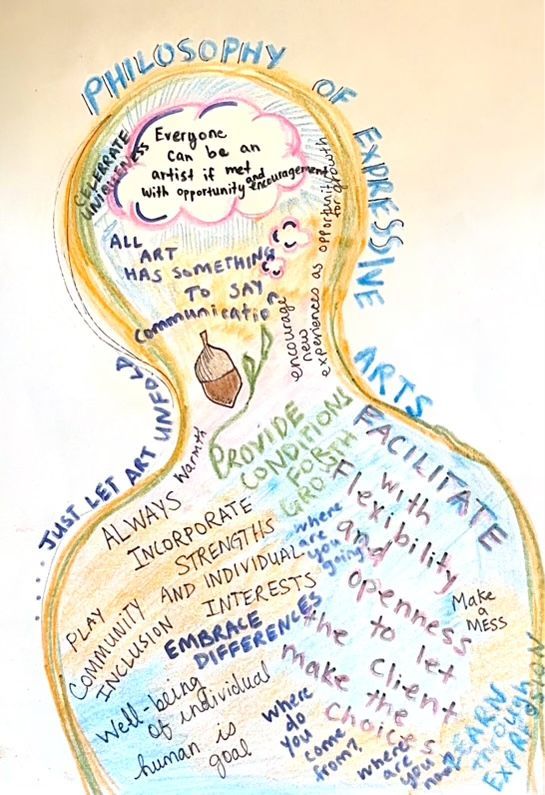 PHILOSOPHY OF EXPRESSIVE ARTS
CELEBRATE
UNIQUENESS
Everyone
can be an
artist if met
with opportunity and encouragement
ALL
ART
HAS SOMETHING
TO SAY
Communication
encourage
new
experiences as opportunity
for growth
JUST LET ART UNFOLD
Warmth
PROVIDE
CONDITIONS
FOR
GROWTH
FACILITATE
with
Flexibility
and
openness
to let
the client
make the
choices
ALWAYS
INCORPORATE
STRENGTHS
AND INDIVIDUAL
INTERESTS
where
are
you
going?
PLAY
COMMUNITY
INCLUSION
EMBRACE
DIFFERENCES
Make
a
MESS
Well-being
of individual
human is
goal
where
do
you
come
from?
where
are
you
now?
LEARN
through
EXPRESSION